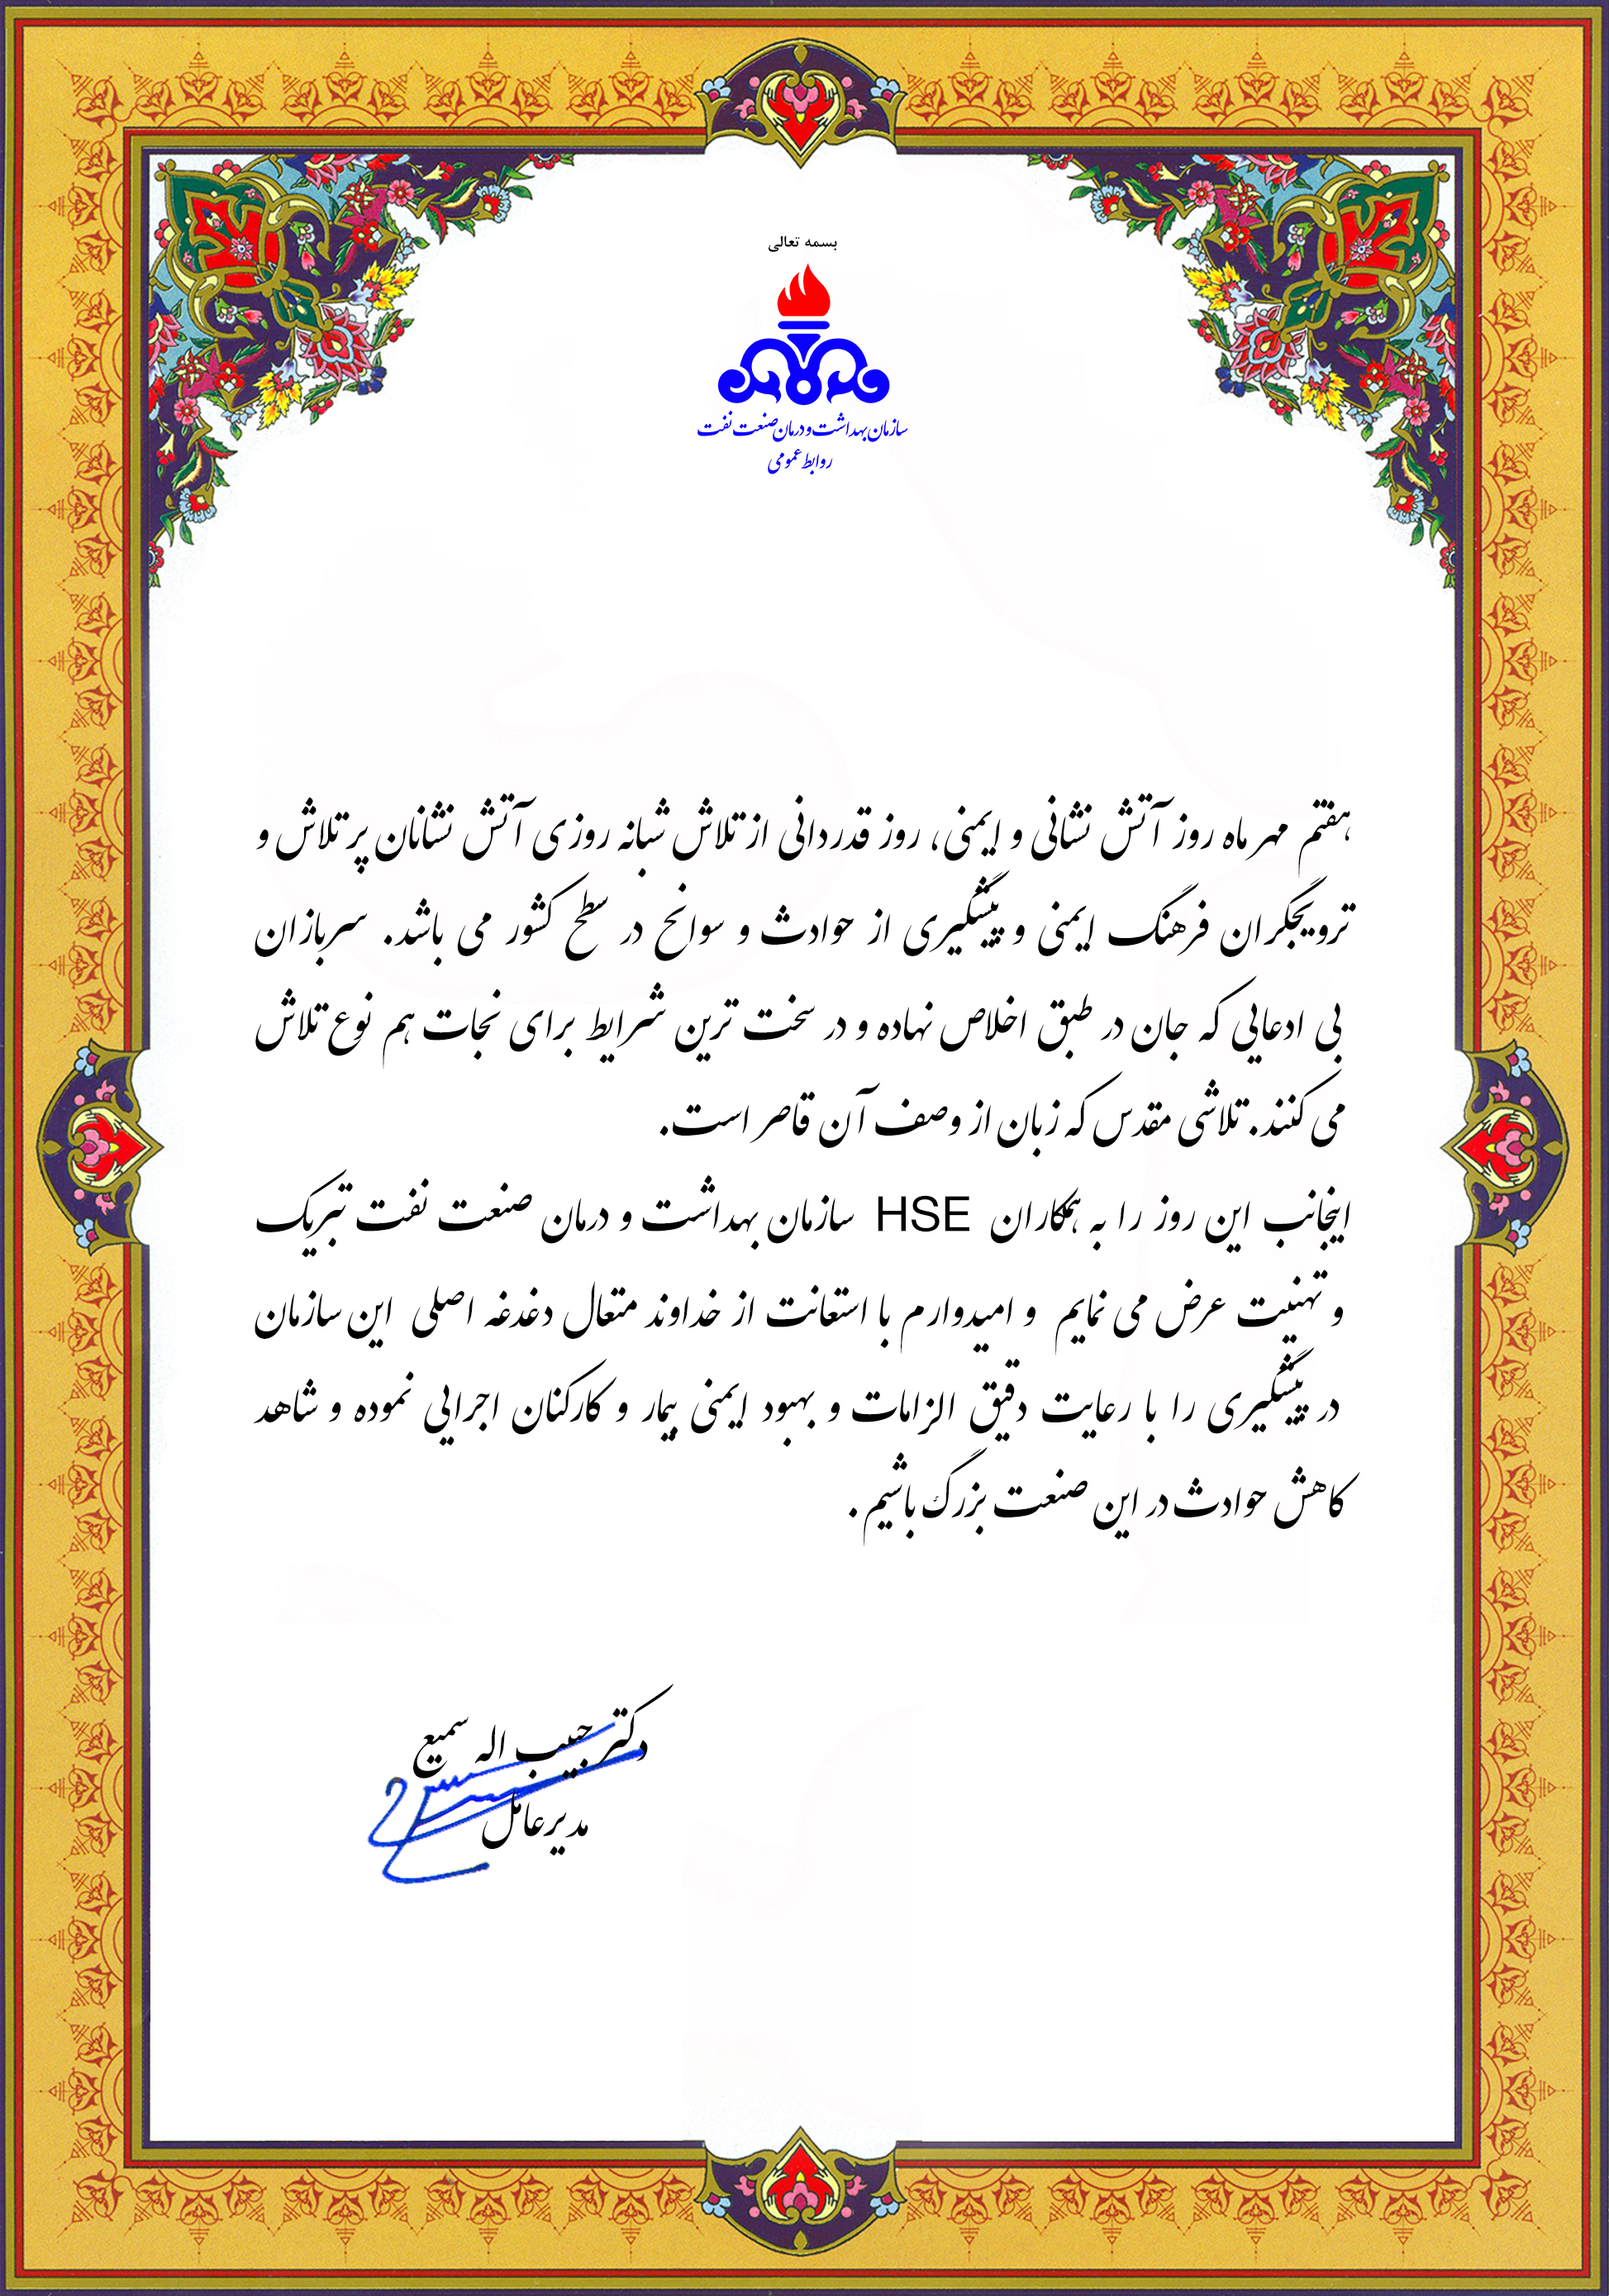 بسمه تعالی
سازمان بهداشت و درمان صنعت نفت
روابط عمومی
هفتم مهر ماه روز آتش نشانی و ایمنی، روز قدردانی از تلاش شبانه روزی آتش نشانان پر تلاش و
ترویجگران فرهنگ ایمنی و پیشگیری از حوادث و سوانح در سطح کشور می باشد. سربازان
بی ادعایی که جان در طبق اخلاص نهاده و در سخت ترین شرایط برای نجات هم نوع تلاش
می کنند. تلاشی مقدس که زبان از وصف آن قاصر است.
اینجانب این روز را به همکاران HSE سازمان بهداشت و درمان صنعت نفت تبریک
و تهنیت عرض می نمایم و امیدوارم با استعانت از خداوند متعال دغدغه اصلی این سازمان
در پیشگیری را با رعایت دقیق الزامات و بهبود ایمنی بیمار و کارکنان اجرایی نموده و شاهد
کاهش حوادث در این صنعت بزرگ باشیم.
دکتر حبیب اله سمیع
مدیرعامل